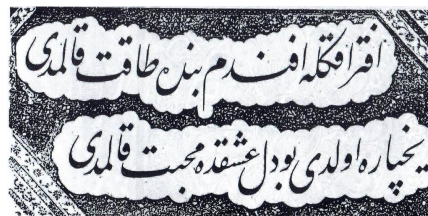 افتراقكله افندم بنده طاقت قالمدی
یخپاره اولدی بو دل عشقده محبت قالمدی